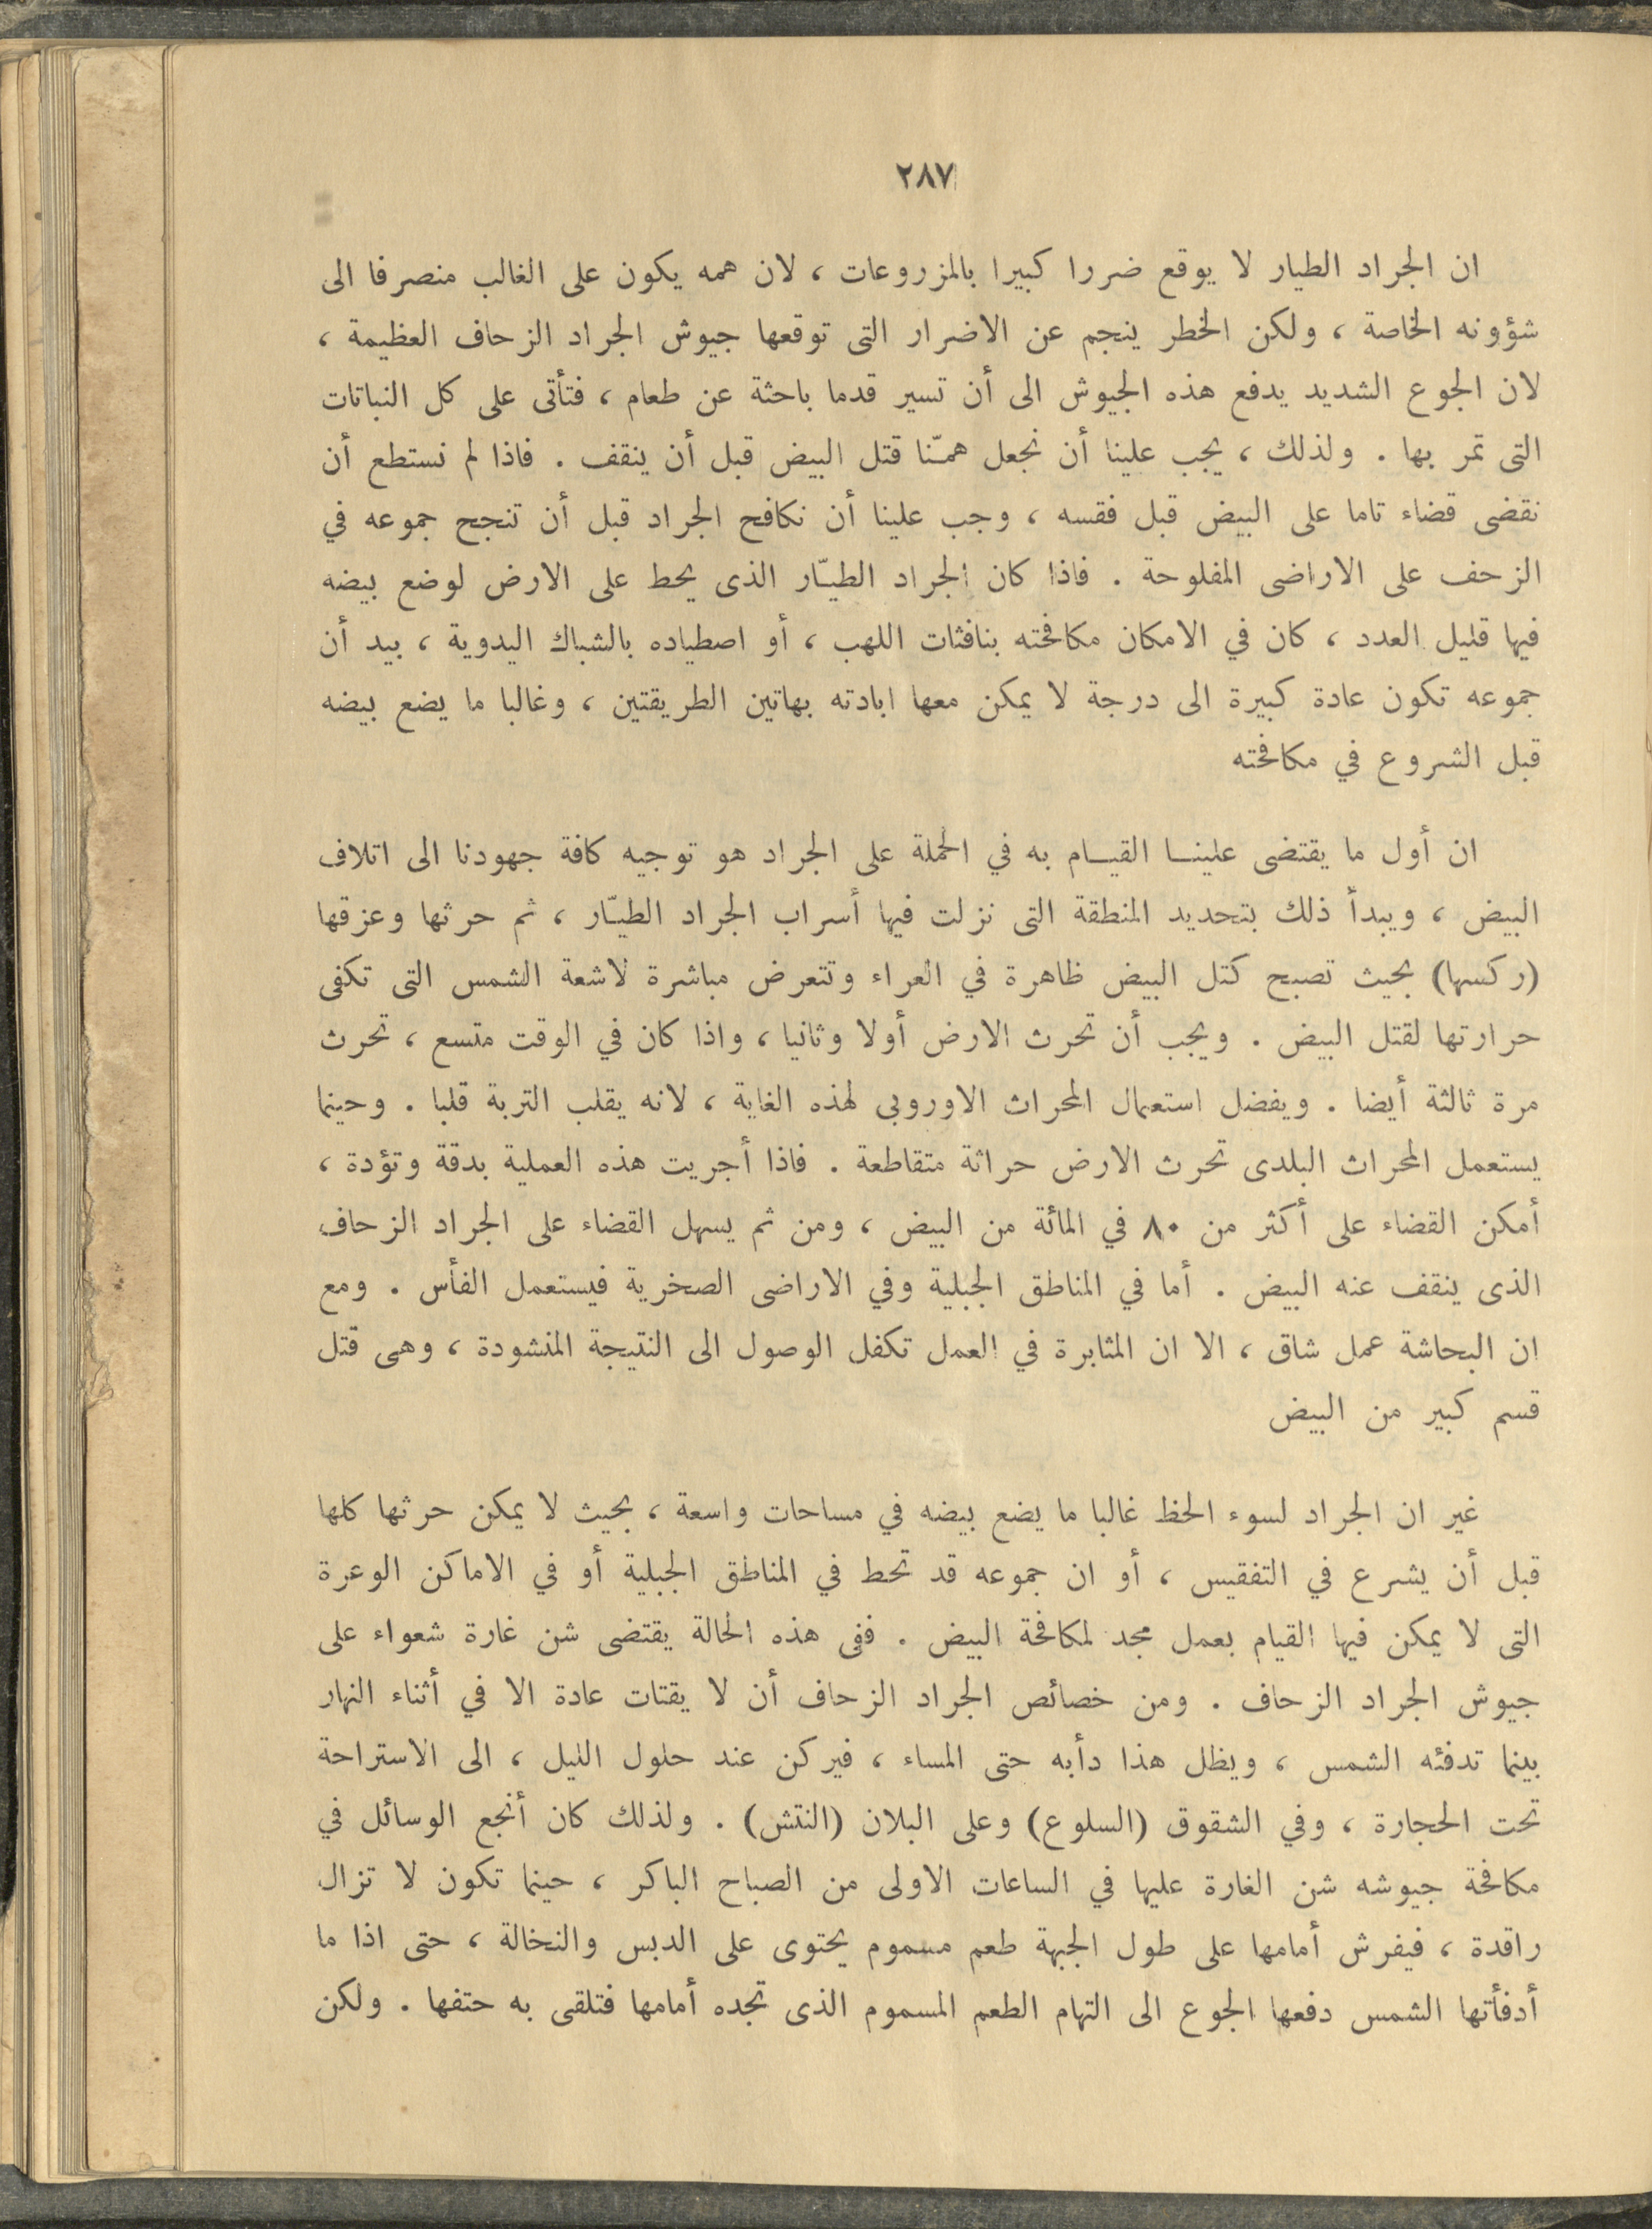 ٢٨٧
ان الجراد الطيار لا يوقع ضررا كبيرا بالمزروعات ، لان همه يكون على الغالب منصرفا الى
شؤونه الخاصة ، ولكن الخطر ينجم عن الاضرار التى توقعها جيوش الجراد الزحاف العظيمة ،
لان الجوع الشديد يدفع هذه الجيوش الى أن تسير قدما باحثة عن طعام ، فتأتى على كل النباتات
التى تمر بها . ولذلك ، يجب علينا أن نجعل همّنا قتل البيض قبل أن ينقف . فاذا لم نستطع أن
نقضى قضاء تاما على البيض قبل فقسه ، وجب علينا أن نكافح الجراد قبل أن تنجح جموعه في
الزحف على الاراضى المفلوحة . فاذا كان الجراد الطيّار الذى يحط على الارض لوضع بيضه
فيها قليل العدد ، كان في الامكان مكافحته بنافثات اللهب ، أو اصطياده بالشباك اليدوية ، بيد أن
جموعه تكون عادة كبيرة الى درجة لا يمكن معها ابادته بهاتين الطريقتين ، وغالبا ما يضع بيضه
قبل الشروع في مكافحته
ان أول ما يقتضى علينا القيام به في الحملة على الجراد هو توجيه كافة جهودنا الى اتلاف
البيض ، ويبدأ ذلك بتحديد المنطقة التى نزلت فيها أسراب الجراد الطيّار ، ثم حرثها وعزقها
(ركسها) بحيث تصبح كتل البيض ظاهرة في العراء وتتعرض مباشرة لاشعة الشمس التى تكفى
حرارتها لقتل البيض . ويجب أن تحرث الارض أولا وثانيا ، واذا كان في الوقت متسع ، تحرث
مرة ثالثة أيضا . ويفضل استعمال المحراث الاوروبى لهذه الغاية ، لانه يقلب التربة قلبا . وحينما
يستعمل المحراث البلدى تحرث الارض حراثة متقاطعة . فاذا أجريت هذه العملية بدقة وتؤدة ،
أمكن القضاء على أكثر من ٨٠ في المائة من البيض ، ومن ثم يسهل القضاء على الجراد الزحاف
الذى ينقف عنه البيض . أما في المناطق الجبلية وفي الاراضى الصخرية فيستعمل الفأس . ومع
ان البحاشة عمل شاق ، الا ان المثابرة في العمل تكفل الوصول الى النتيجة المنشودة ، وهى قتل
قسم كبير من البيض
غير ان الجراد لسوء الحظ غالبا ما يضع بيضه في مساحات واسعة ، بحيث لا يمكن حرثها كلها
قبل أن يشرع في التفقيس ، أو ان جموعه قد تحط في المناطق الجبلية أو في الاماكن الوعرة
التى لا يمكن فيها القيام بعمل مجد لمكافحة البيض . ففى هذه الحالة يقتضى شن غارة شعواء على
جيوش الجراد الزحاف . ومن خصائص الجراد الزحاف أن لا يقتات عادة الا في أثناء النهار
بينما تدفئه الشمس ، ويظل هذا دأبه حتى المساء ، فيركن عند حلول الليل ، الى الاستراحة
تحت الحجارة ، وفي الشقوق (السلوع) وعلى البلان (النتش) . ولذلك كان أنجع الوسائل في
مكافحة جيوشه شن الغارة عليها في الساعات الاولى من الصباح الباكر ، حينما تكون لا تزال
راقدة ، فيفرش أمامها على طول الجبهة طعم مسموم يحتوى على الدبس والنخالة ، حتى اذا ما
أدفأتها الشمس دفعها الجوع الى التهام الطعم المسموم الذى تجده أمامها فتلقى به حتفها . ولكن